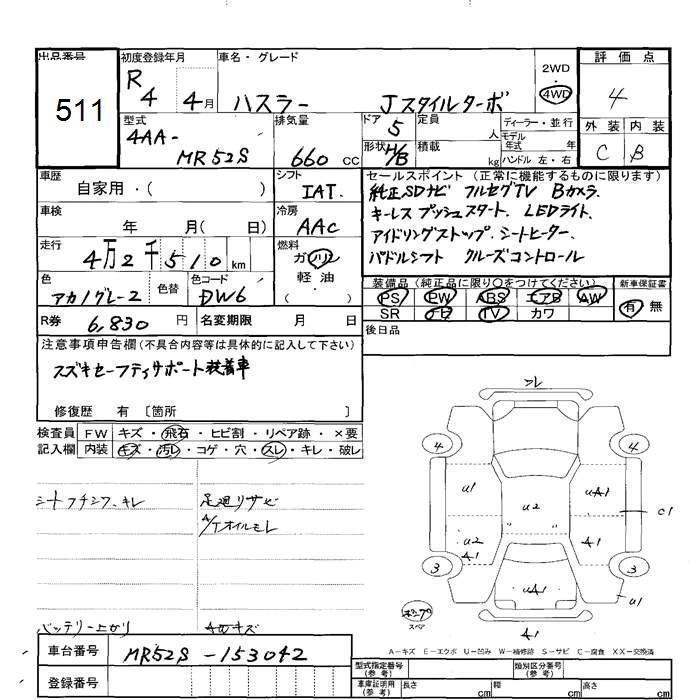 出品番号
511
初度登録年月
R4 4月
車名・グレード
ハスラー Jスタイルターボ
2WD・4WD
評価点
4
外装 内装
C B
型式
4AA-MR52S
排気量
660 cc
ドア 5
形状 H/B
定員 人
積載 kg
ディーラー・並行
モデル年式 年
ハンドル 左・右
車歴
自家用・( )
シフト
IAT
車検
年 月( 日)
冷房
AAC
走行
4万2千510 km
燃料
ガソリン
軽油
色
アカ/グレー2
色替
色コード
DW6
R券 6,830 円
名変期限 月 日
セールスポイント(正常に機能するものに限ります)
純正SDナビ フルセグTV Bカメラ
キーレス プッシュスタート、LEDライト、
アイドリングストップ、シートヒーター、
パドルシフト クルーズコントロール
装備品(純正品に限り○をつけてください)
PS PW ABS エアB AW
SR ナビ TV カワ
新車保証書
有 無
後日品
注意事項申告欄(不具合内容等は具体的に記入して下さい)
スズキセーフティサポート装着車
修復歴 有 [箇所 ]
検査員記入欄
FW キズ・飛石・ヒビ割・リペア跡・×要
内装 キズ・汚レ・コゲ・穴・スレ・キレ・破レ
足廻リサビ
A/Tオイルモレ
バッテリー上がり
4 4
U1 UA1
U2
C1
U2 A1 A1
3 3
UA1 U1
スペア
A1
A-キズ E-エクボ U-凹み W-補修跡 S-サビ C-腐食 XX-交換済
車台番号
MR52S-153042
登録番号
型式指定番号(参考)
類別区分番号(参考)
車庫証明用(参考)
長さ cm 幅 cm 高さ cm